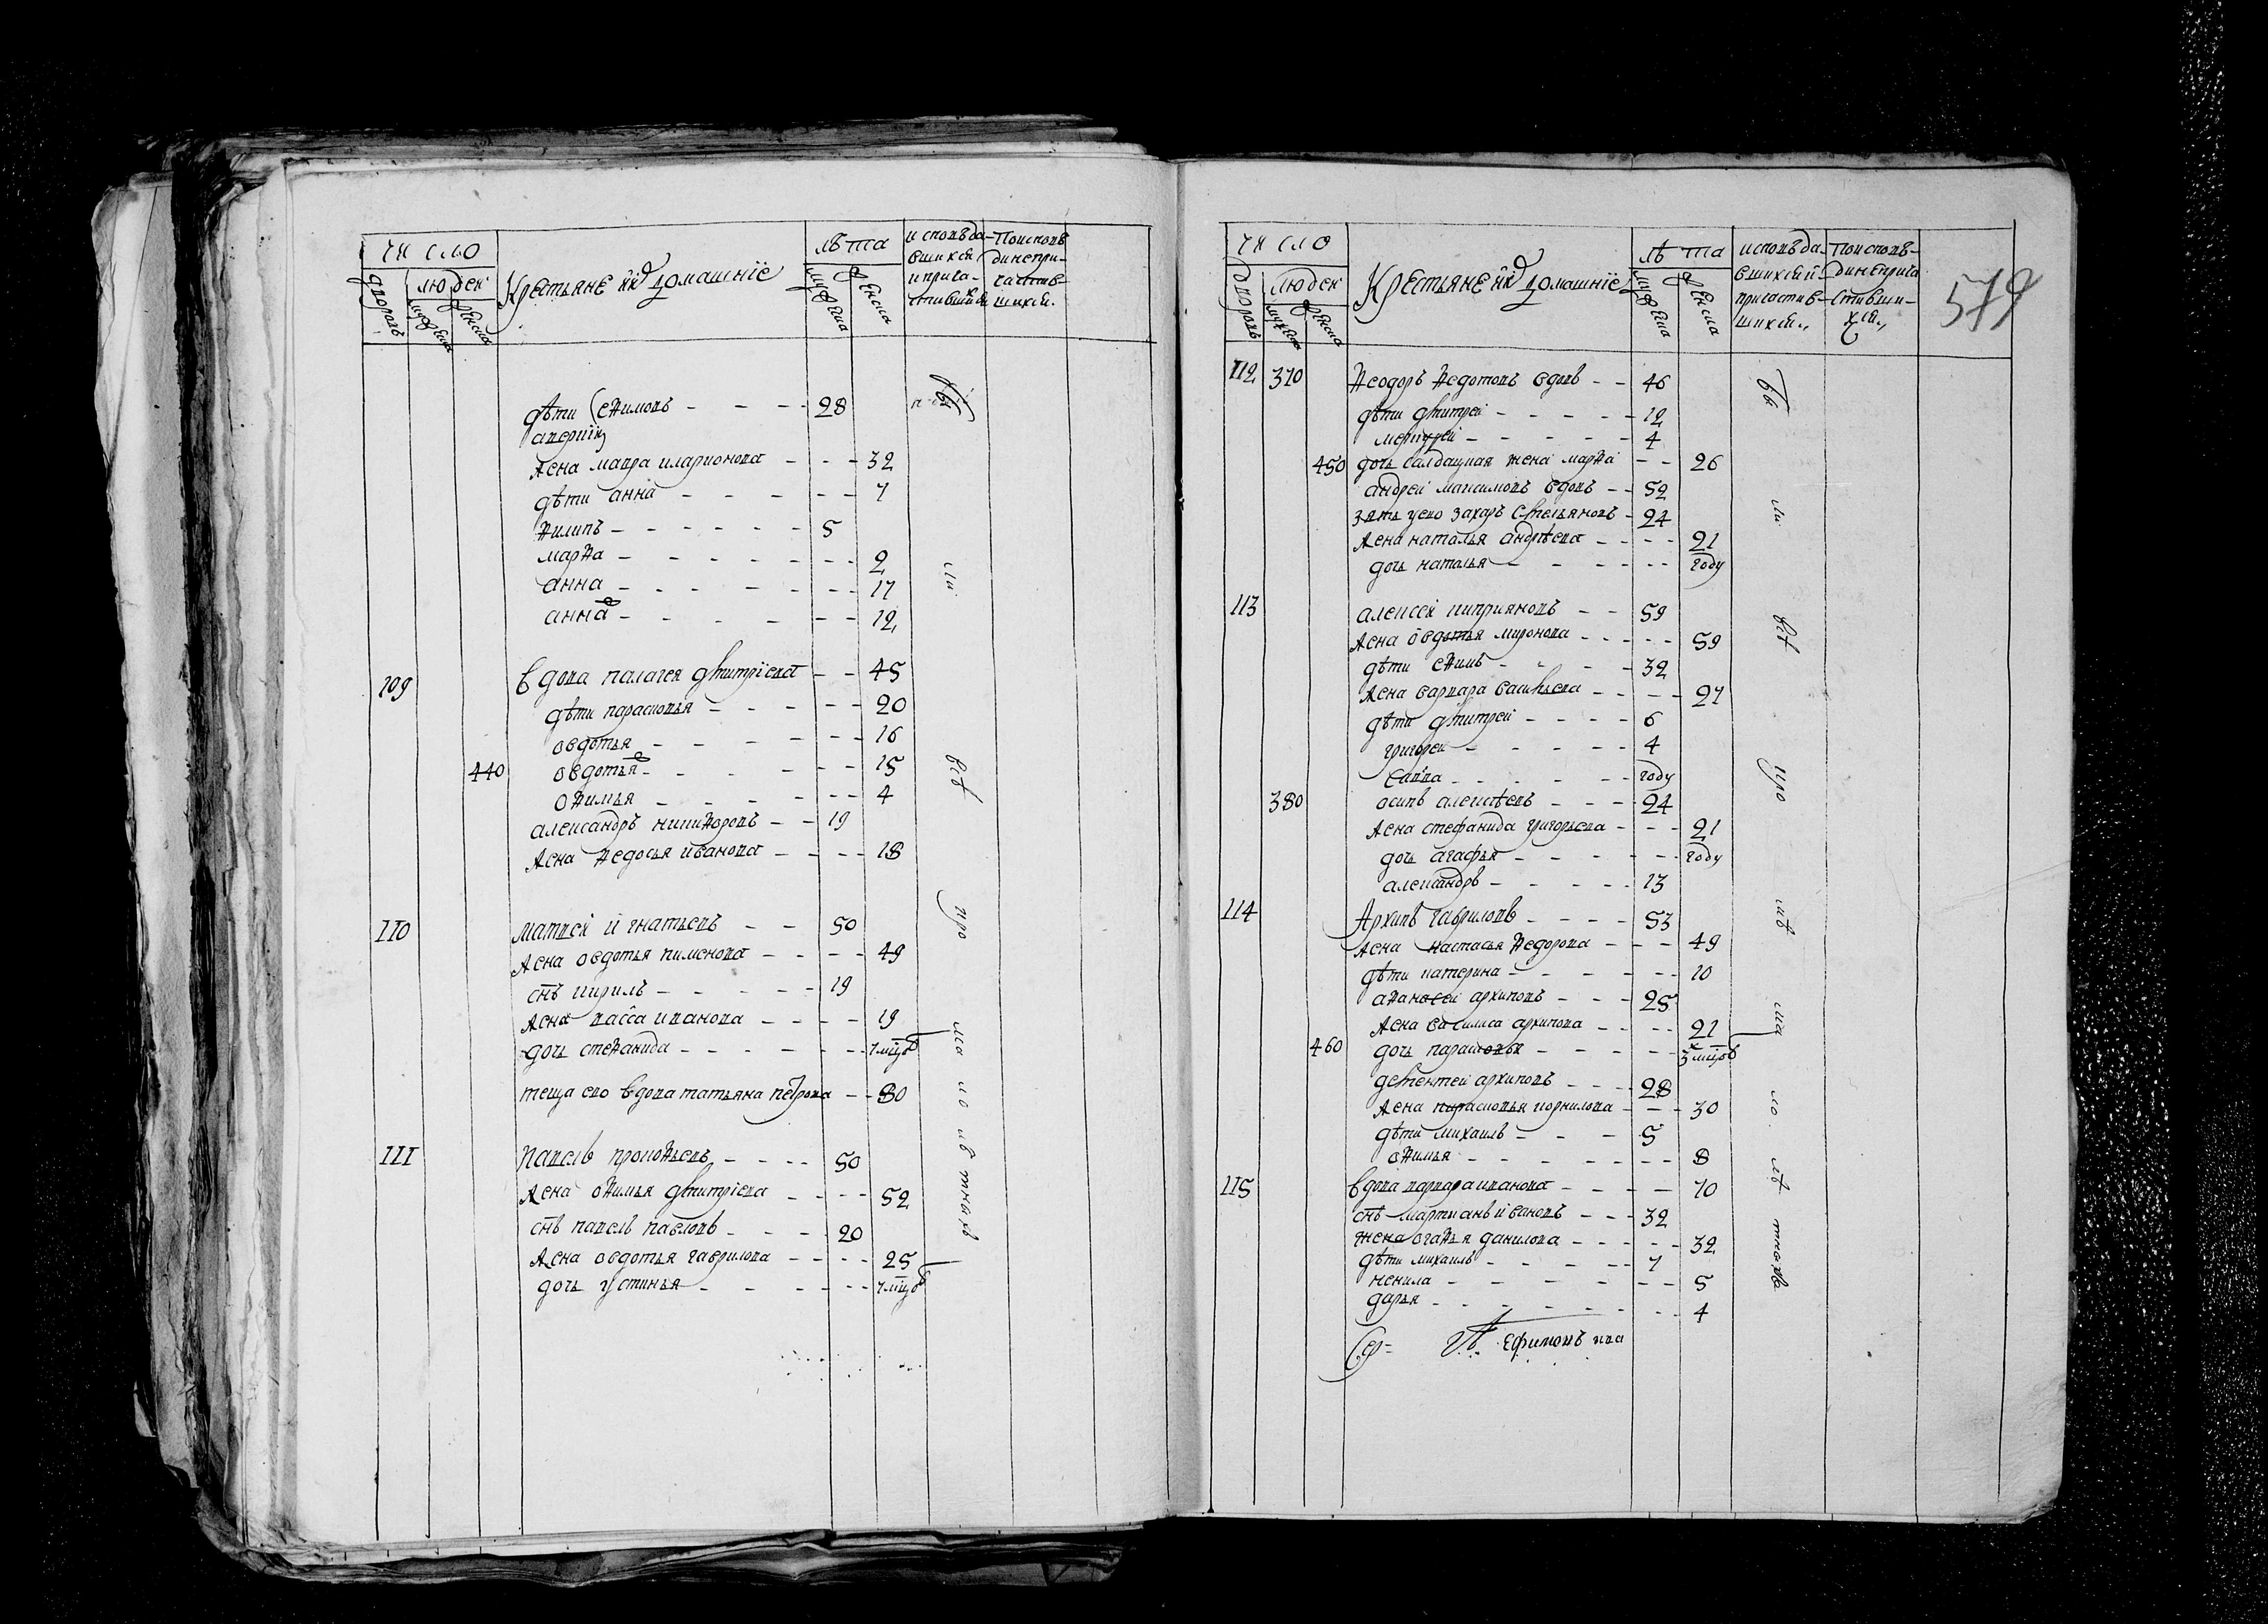 число
людей
дворовъ
мужеска
женска
Крестьяне и ихъ домашніе
лѣта
мужеска
женска
исповѣдавшихся и причастившихся
По исповѣди непричастившихся
дѣти Ѳилиповъ - - - 28
жена мавра иларионова - - - 32
дѣти анна - - - 7
Ѳилипъ - - - 5
марѳа - - - 2
анна - - - 17
анна - - - 12
109 вдова палагея дмитріева - - 45
дѣти парасковья - - - 20
овдотья - - - 16
440 овдотья - - - 15
оѲимья - - - 4
александръ никиѲоровъ - - 19
жена Ѳедосья иванова - - - 18
110 матвеі игнатьевъ - - 50
жена овдотья пименова - - - 49
снъ кирилъ - - - 19
жена васса иванова - - - 19
дочь стеѲанида - - - 7 мцовъ
теща ево вдова татьяна петрова - - 80
111 павелъ прокоѲьевъ - - - 50
жена оѲимья дмитріева - - - 52
снъ павелъ павловъ - - - 20
жена овдотья гаврилова - - - 25
дочь устинья - - - 7 мцовъ
число
людей
дворовъ
мужеска
женска
Крестьяне и ихъ домашніе
лѣта
мужеска
женска
исповѣдавшихся и причастившихся
По исповѣди непричастившихся
579
112 370 Ѳеодоръ Ѳедотовъ вдовъ - - 46
дѣти дмитреи - - - 12
меркурей - - - 4
450 дочь салдацкая жена марѳа - - 26
андреи максимовъ вдовъ - - 52
зять у ево захаръ степановъ - 24
жена наталья андрѣева - - - 21
дочь наталья - - - году
113 алексеі киприяновъ - - 59
жена овдотья миронова - - - 59
дѣти еѲимъ - - - 32
жена варвара васильева - - - 27
дѣти дмитреи - - - 6
григореи - - - 4
савва - - - году
380 осипъ алексѣевъ - - - 24
жена стефанида григорьева - - - 21
дочь агафья - - - году
александръ - - - 13
114 Архипъ гавриловъ - - - 53
жена настасья Ѳедорова - - - 49
дѣти катерина - - - 10
аѲанасеи архиповъ - - - 25
жена василиса архипова - - - 21
460 дочь парасковья - - - 3х мцовъ
дементеи архиповъ - - - 28
жена парасковья корнилова - - - 30
дѣти михаилъ - - - 5
оѲимья - - - 8
115 вдова варвара иванова - - - 70
снъ мартианъ ивановъ - - - 32
жена огаѲья данилова - - - 32
дѣти михаилъ - - - 7
ненила - - - 5
дарья - - - 4
ефимовъ